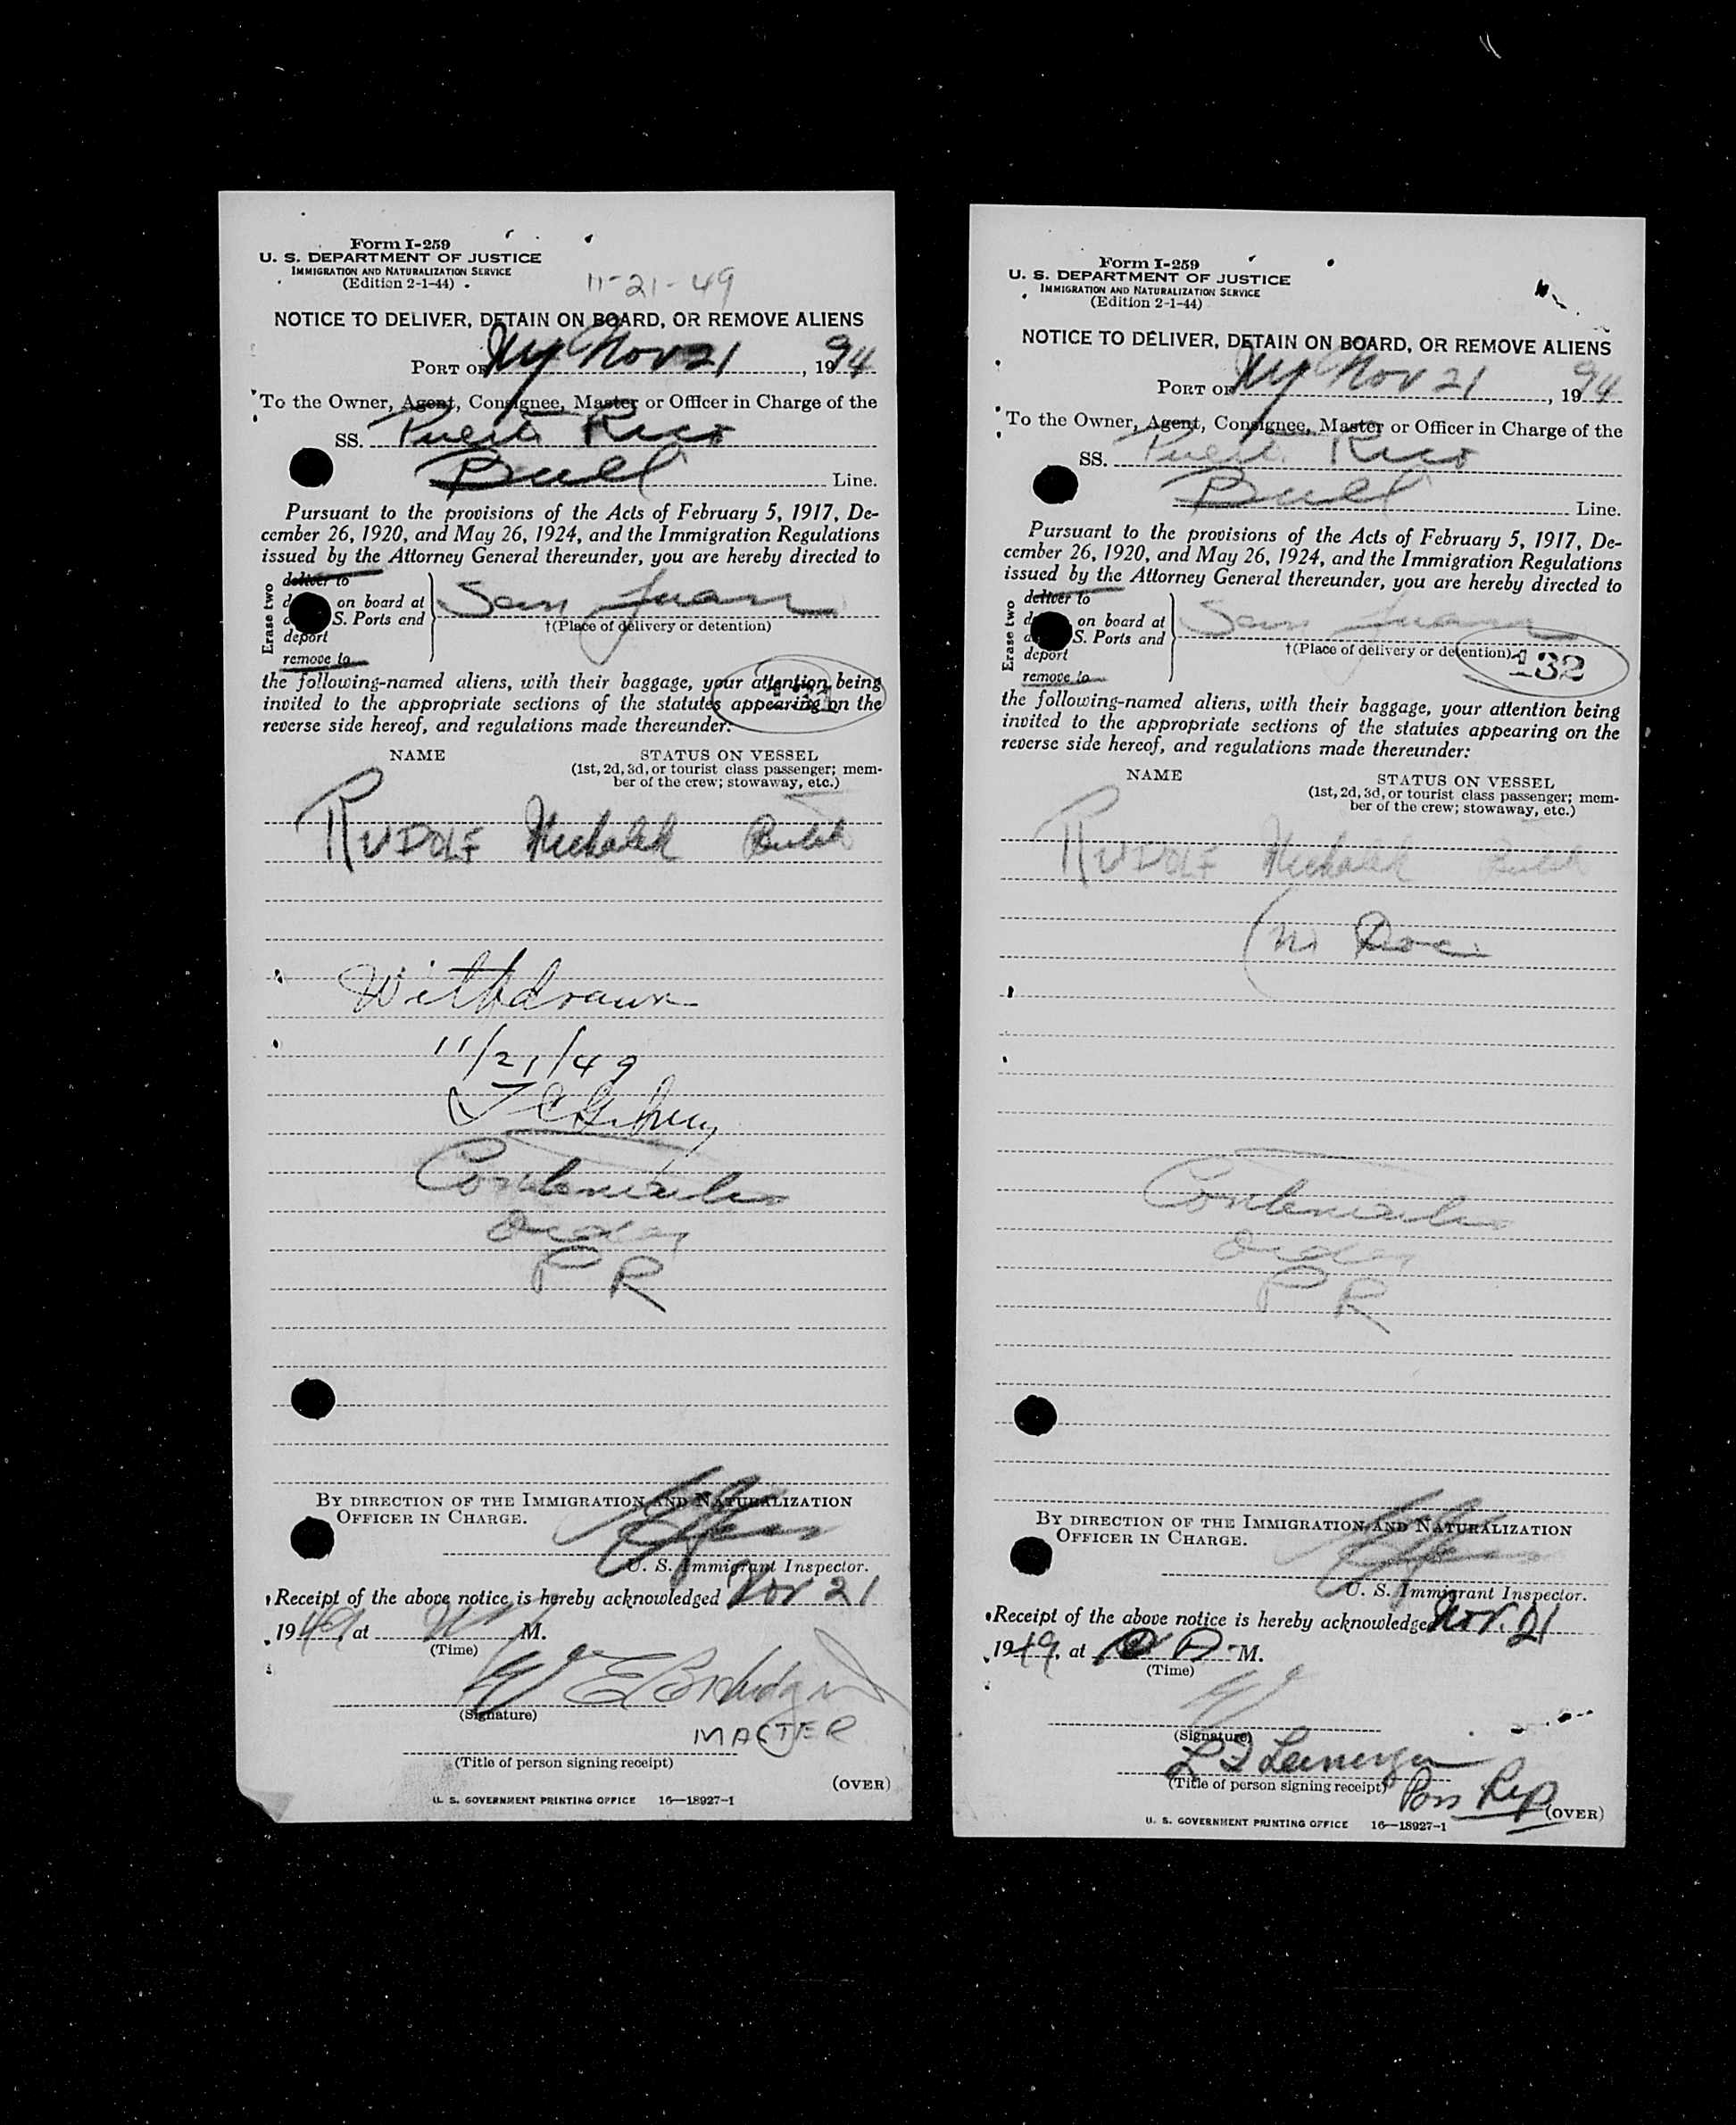 Form I-259
U. S. DEPARTMENT OF JUSTICE
IMMIGRATION AND NATURALIZATION SERVICE
(Edition 2-1-44)
11-21-49
NOTICE TO DELIVER, DETAIN ON BOARD, OR REMOVE ALIENS
PORT OF NY Nov 21, 1994
To the Owner, Agent, Consignee, Master or Officer in Charge of the
SS. Puerto Rico
Bull Line.
Pursuant to the provisions of the Acts of February 5, 1917, De-
cember 26, 1920, and May 26, 1924, and the Immigration Regulations
issued by the Attorney General thereunder, you are hereby directed to
Erase two
deliver to
on board at
S. Ports and
deport
remove to
San Juan
†(Place of delivery or detention)
the following-named aliens, with their baggage, your attention being
invited to the appropriate sections of the statutes appearing on the
reverse side hereof, and regulations made thereunder:
NAME
STATUS ON VESSEL
(1st, 2d, 3d, or tourist class passenger; mem-
ber of the crew; stowaway, etc.)
RUDOLF
Withdrawn
11/21/49
P R
BY DIRECTION OF THE IMMIGRATION AND NATURALIZATION
OFFICER IN CHARGE.
U. S. Immigrant Inspector.
Receipt of the above notice is hereby acknowledged Nov 21
1949 at M.
(Time)
(Signature)
MASTER
(Title of person signing receipt)
(OVER)
U. S. GOVERNMENT PRINTING OFFICE 16—18927-1
Form I-259
U. S. DEPARTMENT OF JUSTICE
IMMIGRATION AND NATURALIZATION SERVICE
(Edition 2-1-44)
NOTICE TO DELIVER, DETAIN ON BOARD, OR REMOVE ALIENS
PORT OF NY Nov 21, 1994
To the Owner, Agent, Consignee, Master or Officer in Charge of the
SS. Puerto Rico
Bull Line.
Pursuant to the provisions of the Acts of February 5, 1917, De-
cember 26, 1920, and May 26, 1924, and the Immigration Regulations
issued by the Attorney General thereunder, you are hereby directed to
Erase two
deliver to
on board at
S. Ports and
deport
remove to
San Juan
†(Place of delivery or detention)
132
the following-named aliens, with their baggage, your attention being
invited to the appropriate sections of the statutes appearing on the
reverse side hereof, and regulations made thereunder:
NAME
STATUS ON VESSEL
(1st, 2d, 3d, or tourist class passenger; mem-
ber of the crew; stowaway, etc.)
RUDOLF
Doc.
P R
BY DIRECTION OF THE IMMIGRATION AND NATURALIZATION
OFFICER IN CHARGE.
U. S. Immigrant Inspector.
Receipt of the above notice is hereby acknowledged Nov. 21
1949, at M.
(Time)
(Signature)
(Title of person signing receipt)
Pass Rep
(OVER)
U. S. GOVERNMENT PRINTING OFFICE 16—18927-1